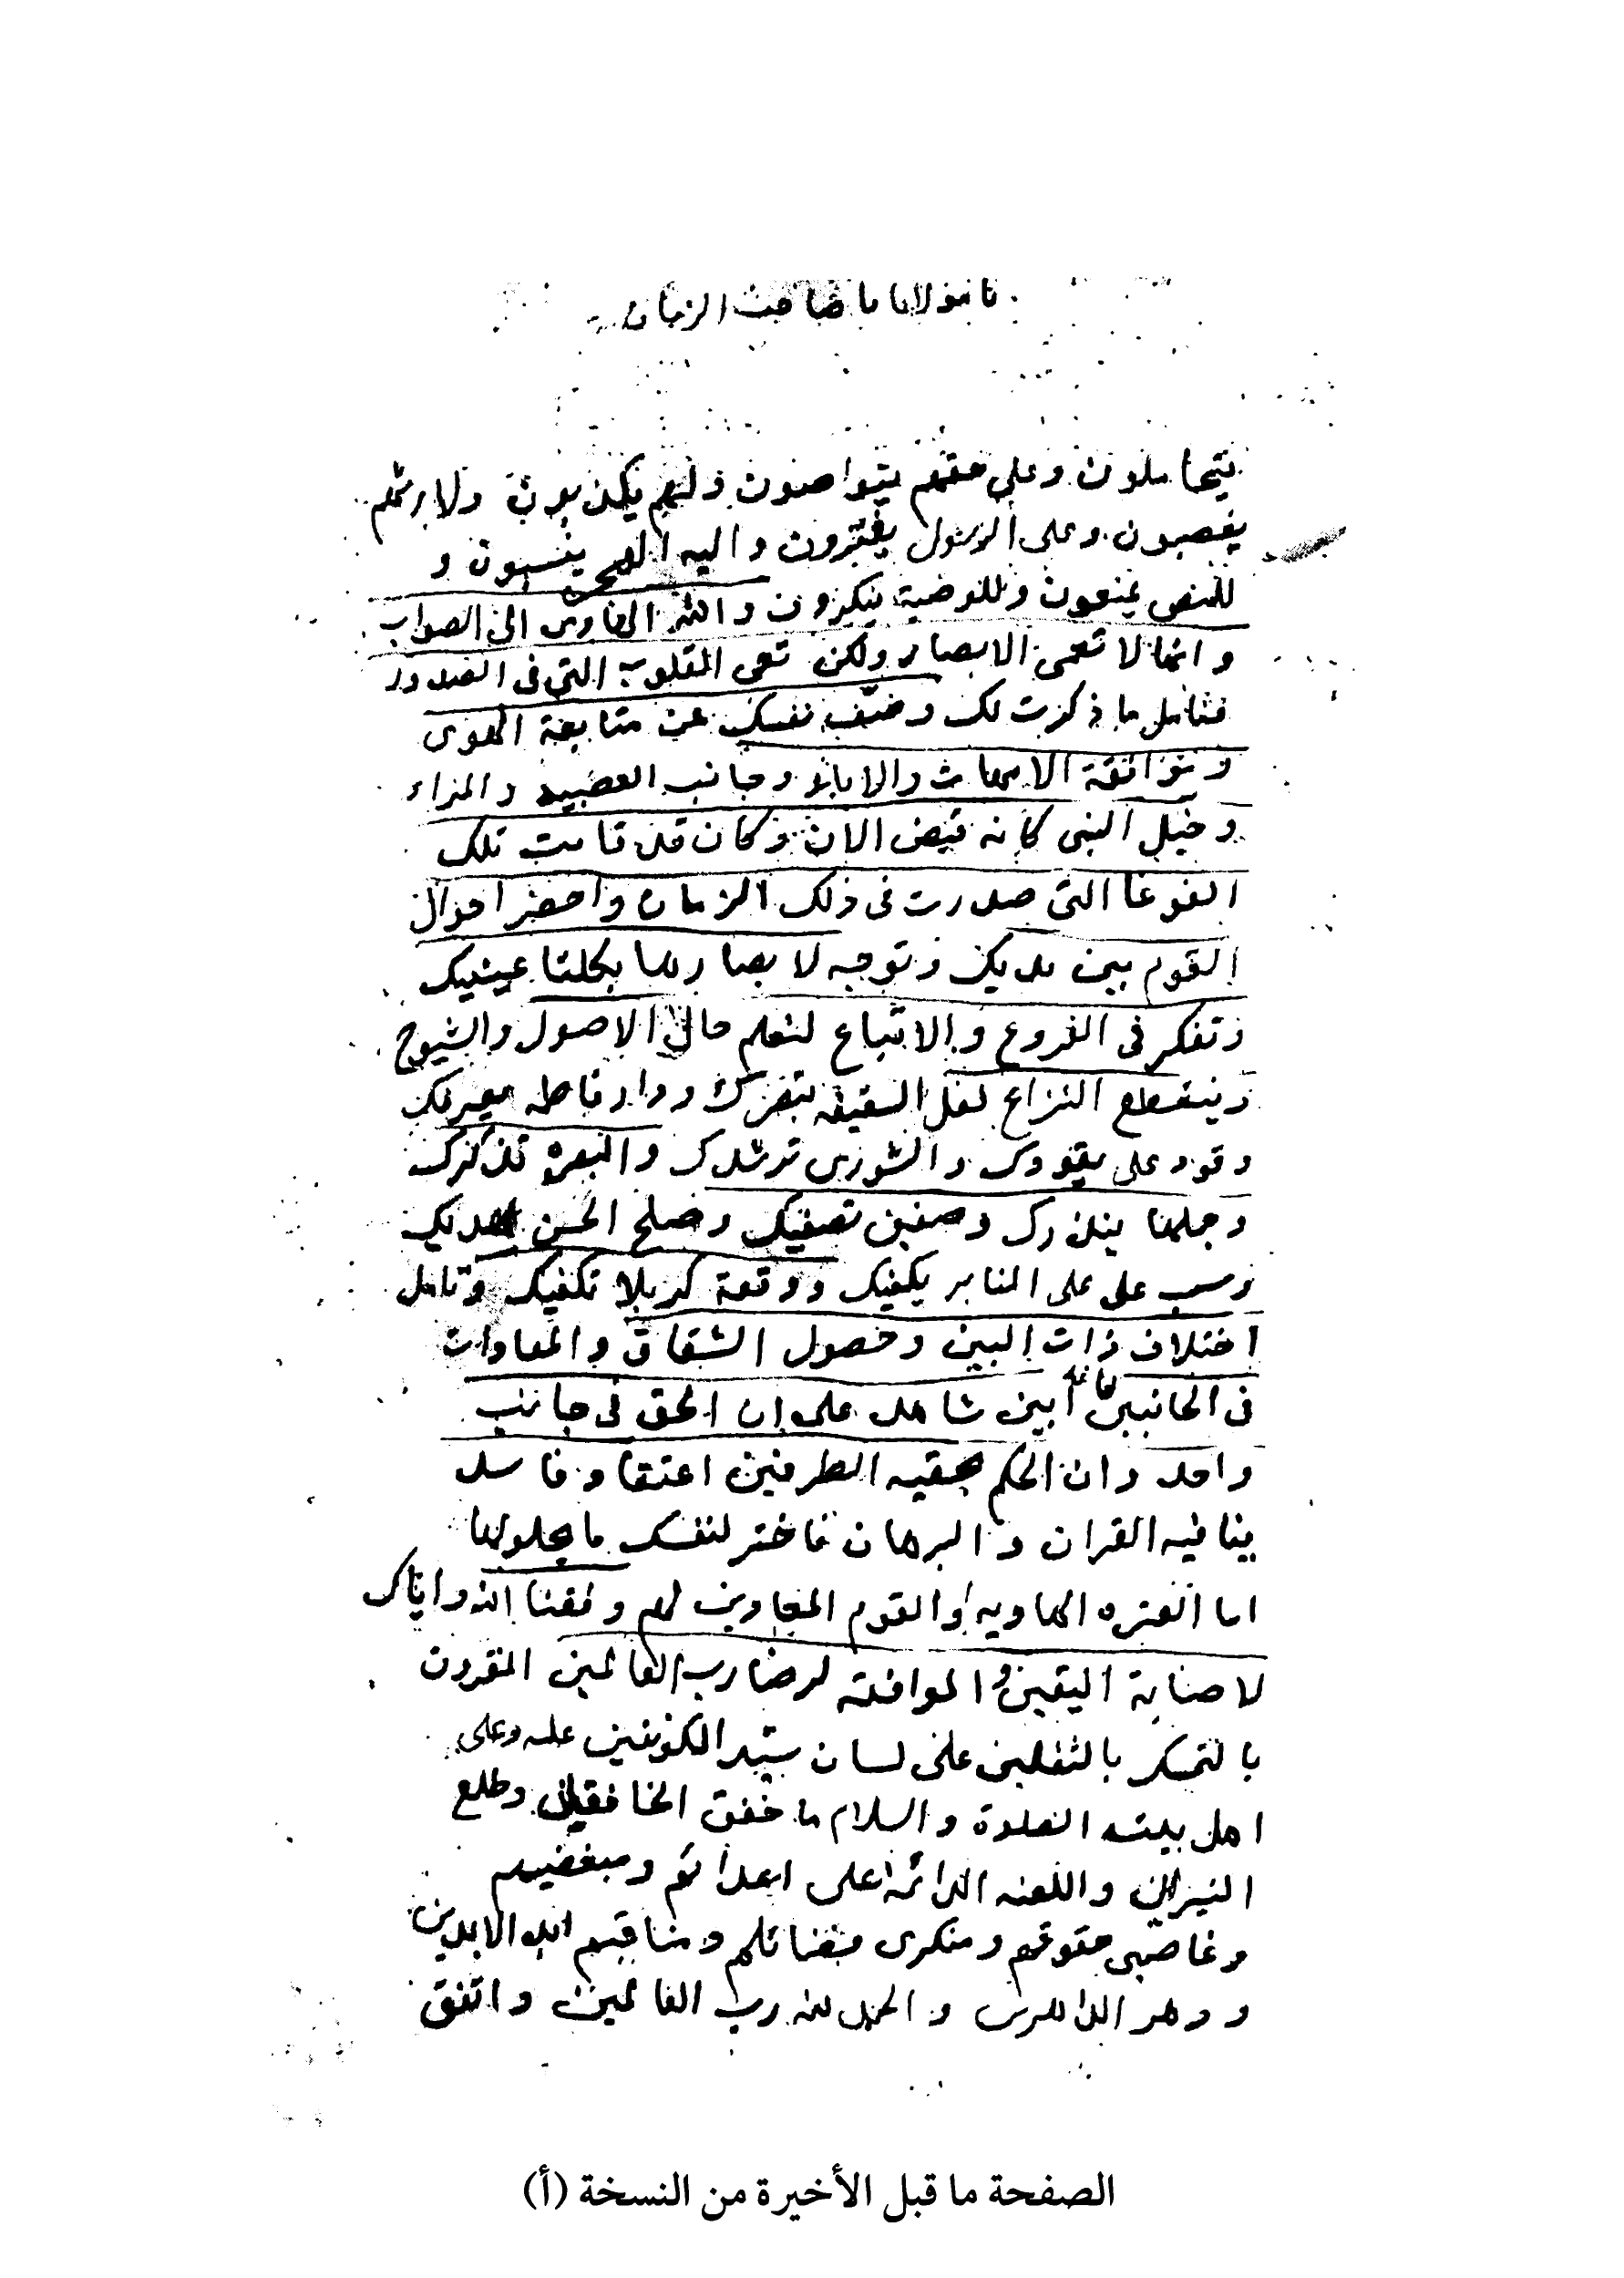 يا مولانا يا صاحب الزمان
يتحاملون وعلى حقهم يتواصون ولهم يكذبون ولارثهم
يغصبون وعلى الرسول يفترون واليه الهجر ينسبون و
للنص يمنعون وللوصية ينكرون والله الهادى الى الصواب
وانها لا تعمى الابصار ولكن تعمى القلوب التى فى الصدور
فتامل ما ذكرت لك وخف نفسك عن متابعة الهوى
وموافقة الامهات والاباء وجانب العصبيه والمراء
وخيل النبى كانه قبض الان وكان قد قامت تلك
الغوغا التى صدرت فى ذلك الزمان واحضر احوال
القوم بين يديك وتوجه لابصارها بكلتا عينيك
وتفكر فى الفروع والاتباع لتعلم حال الاصول والشيوخ
وينقطع النزاع لعل السقيفه و دار فاطمه
وقود على يقودك والشورى ترشدك والبصره تذكرك
وجملها ينذرك وصفين تصفيك وصلح الحسن يهديك
وسب على على المنابر يكفيك ووقعة كربلا تكفيك وتامل
اختلاف ذات البين وحصول الشقاق والمعادات
فى الجانبين فانه أبين شاهد على ان الحق فى جانب
واحد وان الحكم بحقيه الطرفين اعتقاد فاسد
ينافيه القران والبرهان فاختر لنفسك ما يحلو لها
اما العتره الهاديه او القوم المعادين لهم وفقنا الله واياك
لاصابة اليقين والموافقه لرضا رب العالمين المقرون
بالتمسك بالثقلين على لسان سيد الكونين عليه وعلى
اهل بيته الصلوة والسلام ما خفق الخافقان وطلع
النيران واللعنه الدائمة على اعدائهم ومبغضيهم
وغاصبى حقوقهم ومنكرى فضائلهم ومناقبهم ابد الابدين
ودهر الداهرين والحمد لله رب العالمين واتفق
الصفحة ما قبل الأخيرة من النسخة (أ)